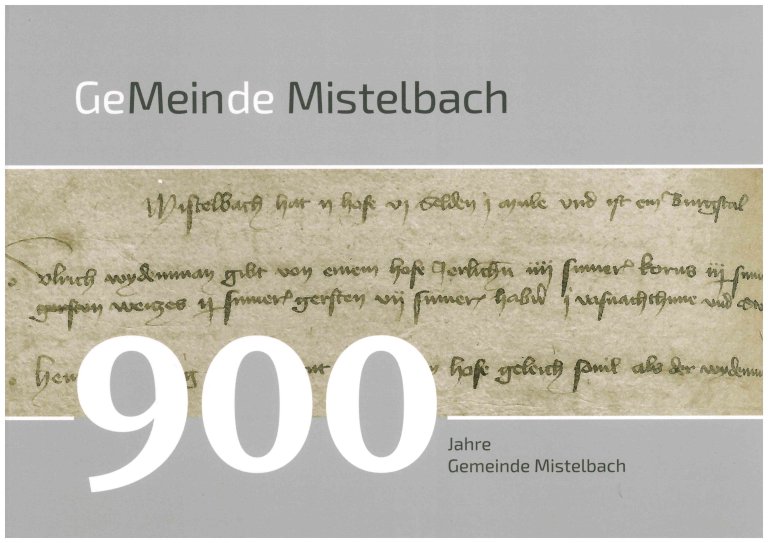 GeMeinde Mistelbach
Mistelbach hat ii hofe vi Selden i mule vnd ist ein Burgstal
vlrich wydenman gibt von einem hofe Jerlichn iiii sumer korns iij
gersten weizes ij sumer gersten vii sumer habern i vasnachthune vnd
hofe geleich souil als der
900
Jahre
Gemeinde Mistelbach